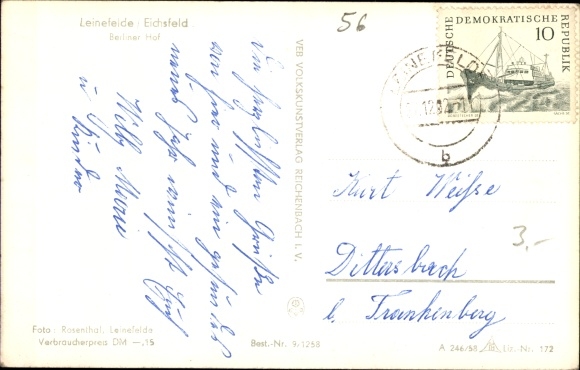 Leinefelde / Eichsfeld
Berliner Hof
56
DEUTSCHE DEMOKRATISCHE REPUBLIK
10
b
Die herzlichsten Grüße
von hier und ein gesundes
neues Jahr wünscht Euch
Willy Marie
u. Kinder
VEB VOLKSKUNSTVERLAG REICHENBACH I. V.
Kurt Weiße
3,-
Dittersbach
b. Frankenberg
Foto: Rosenthal, Leinefelde
Verbraucherpreis DM —,15
Best.-Nr. 9-1258
A 246/58 Liz.-Nr. 172